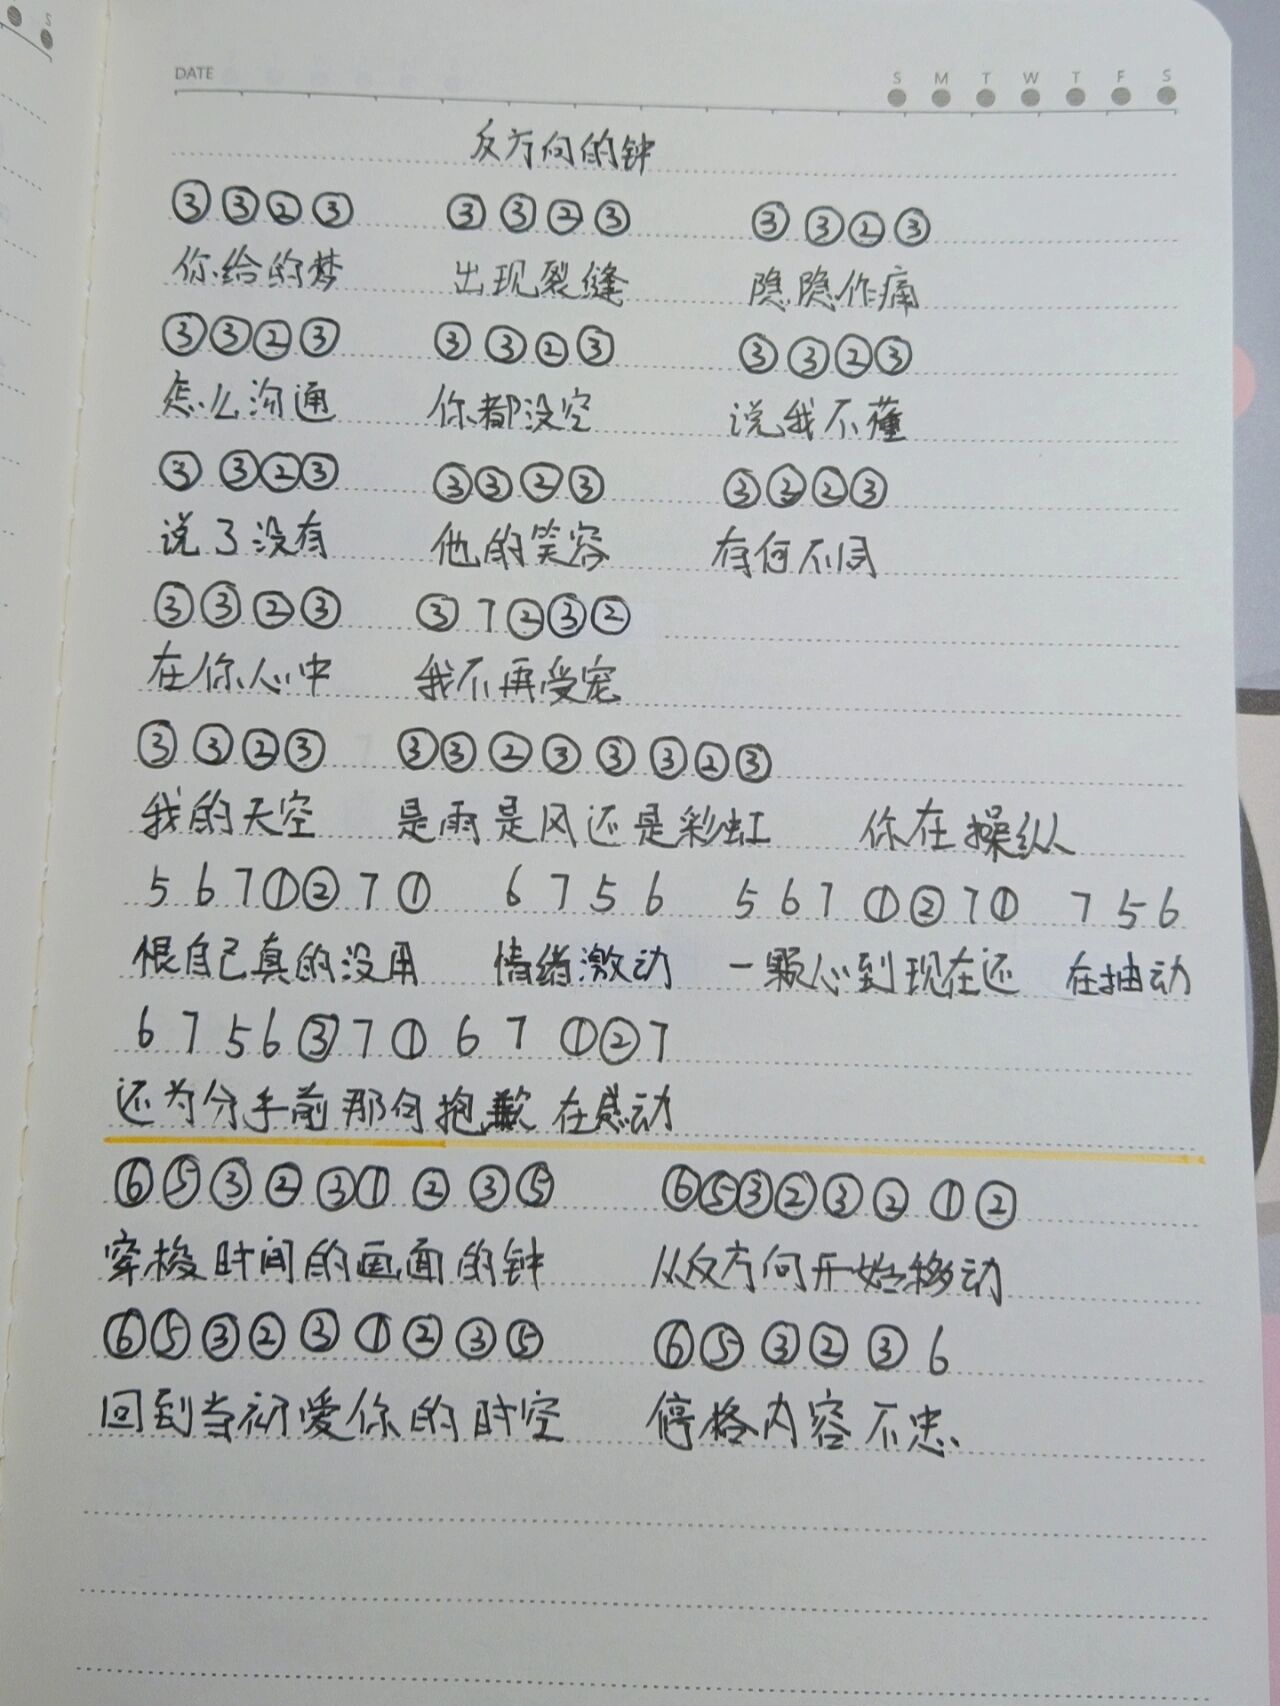 S
DATE S M T W T F S
反方向的钟
③③②③ ③③②③ ③③②③
你给的梦 出现裂缝 隐隐作痛
③③②③ ③③②③ ③③②③
怎么沟通 你都没空 说我不懂
③③②③ ③③②③ ③③②③
说了没有 他的笑容 有何不同
③③②③ ③7②③②
在你心中 我不再受宠
③③②③ ③③②③③③②③
我的天空 是雨是风还是彩虹 你在操纵
567①②7① 6756 567①②7① 756
恨自己真的没用 情绪激动 一颗心到现在还 在抽动
6756③7①67 ①②7
还为分手前那句抱歉 在感动
⑥⑤③②③①②③⑤ ⑥⑤③②③②①②
穿梭时间的画面的钟 从反方向开始移动
⑥⑤③②③①②③⑤ ⑥⑤③②③6
回到当初爱你的时空 停格内容不忠